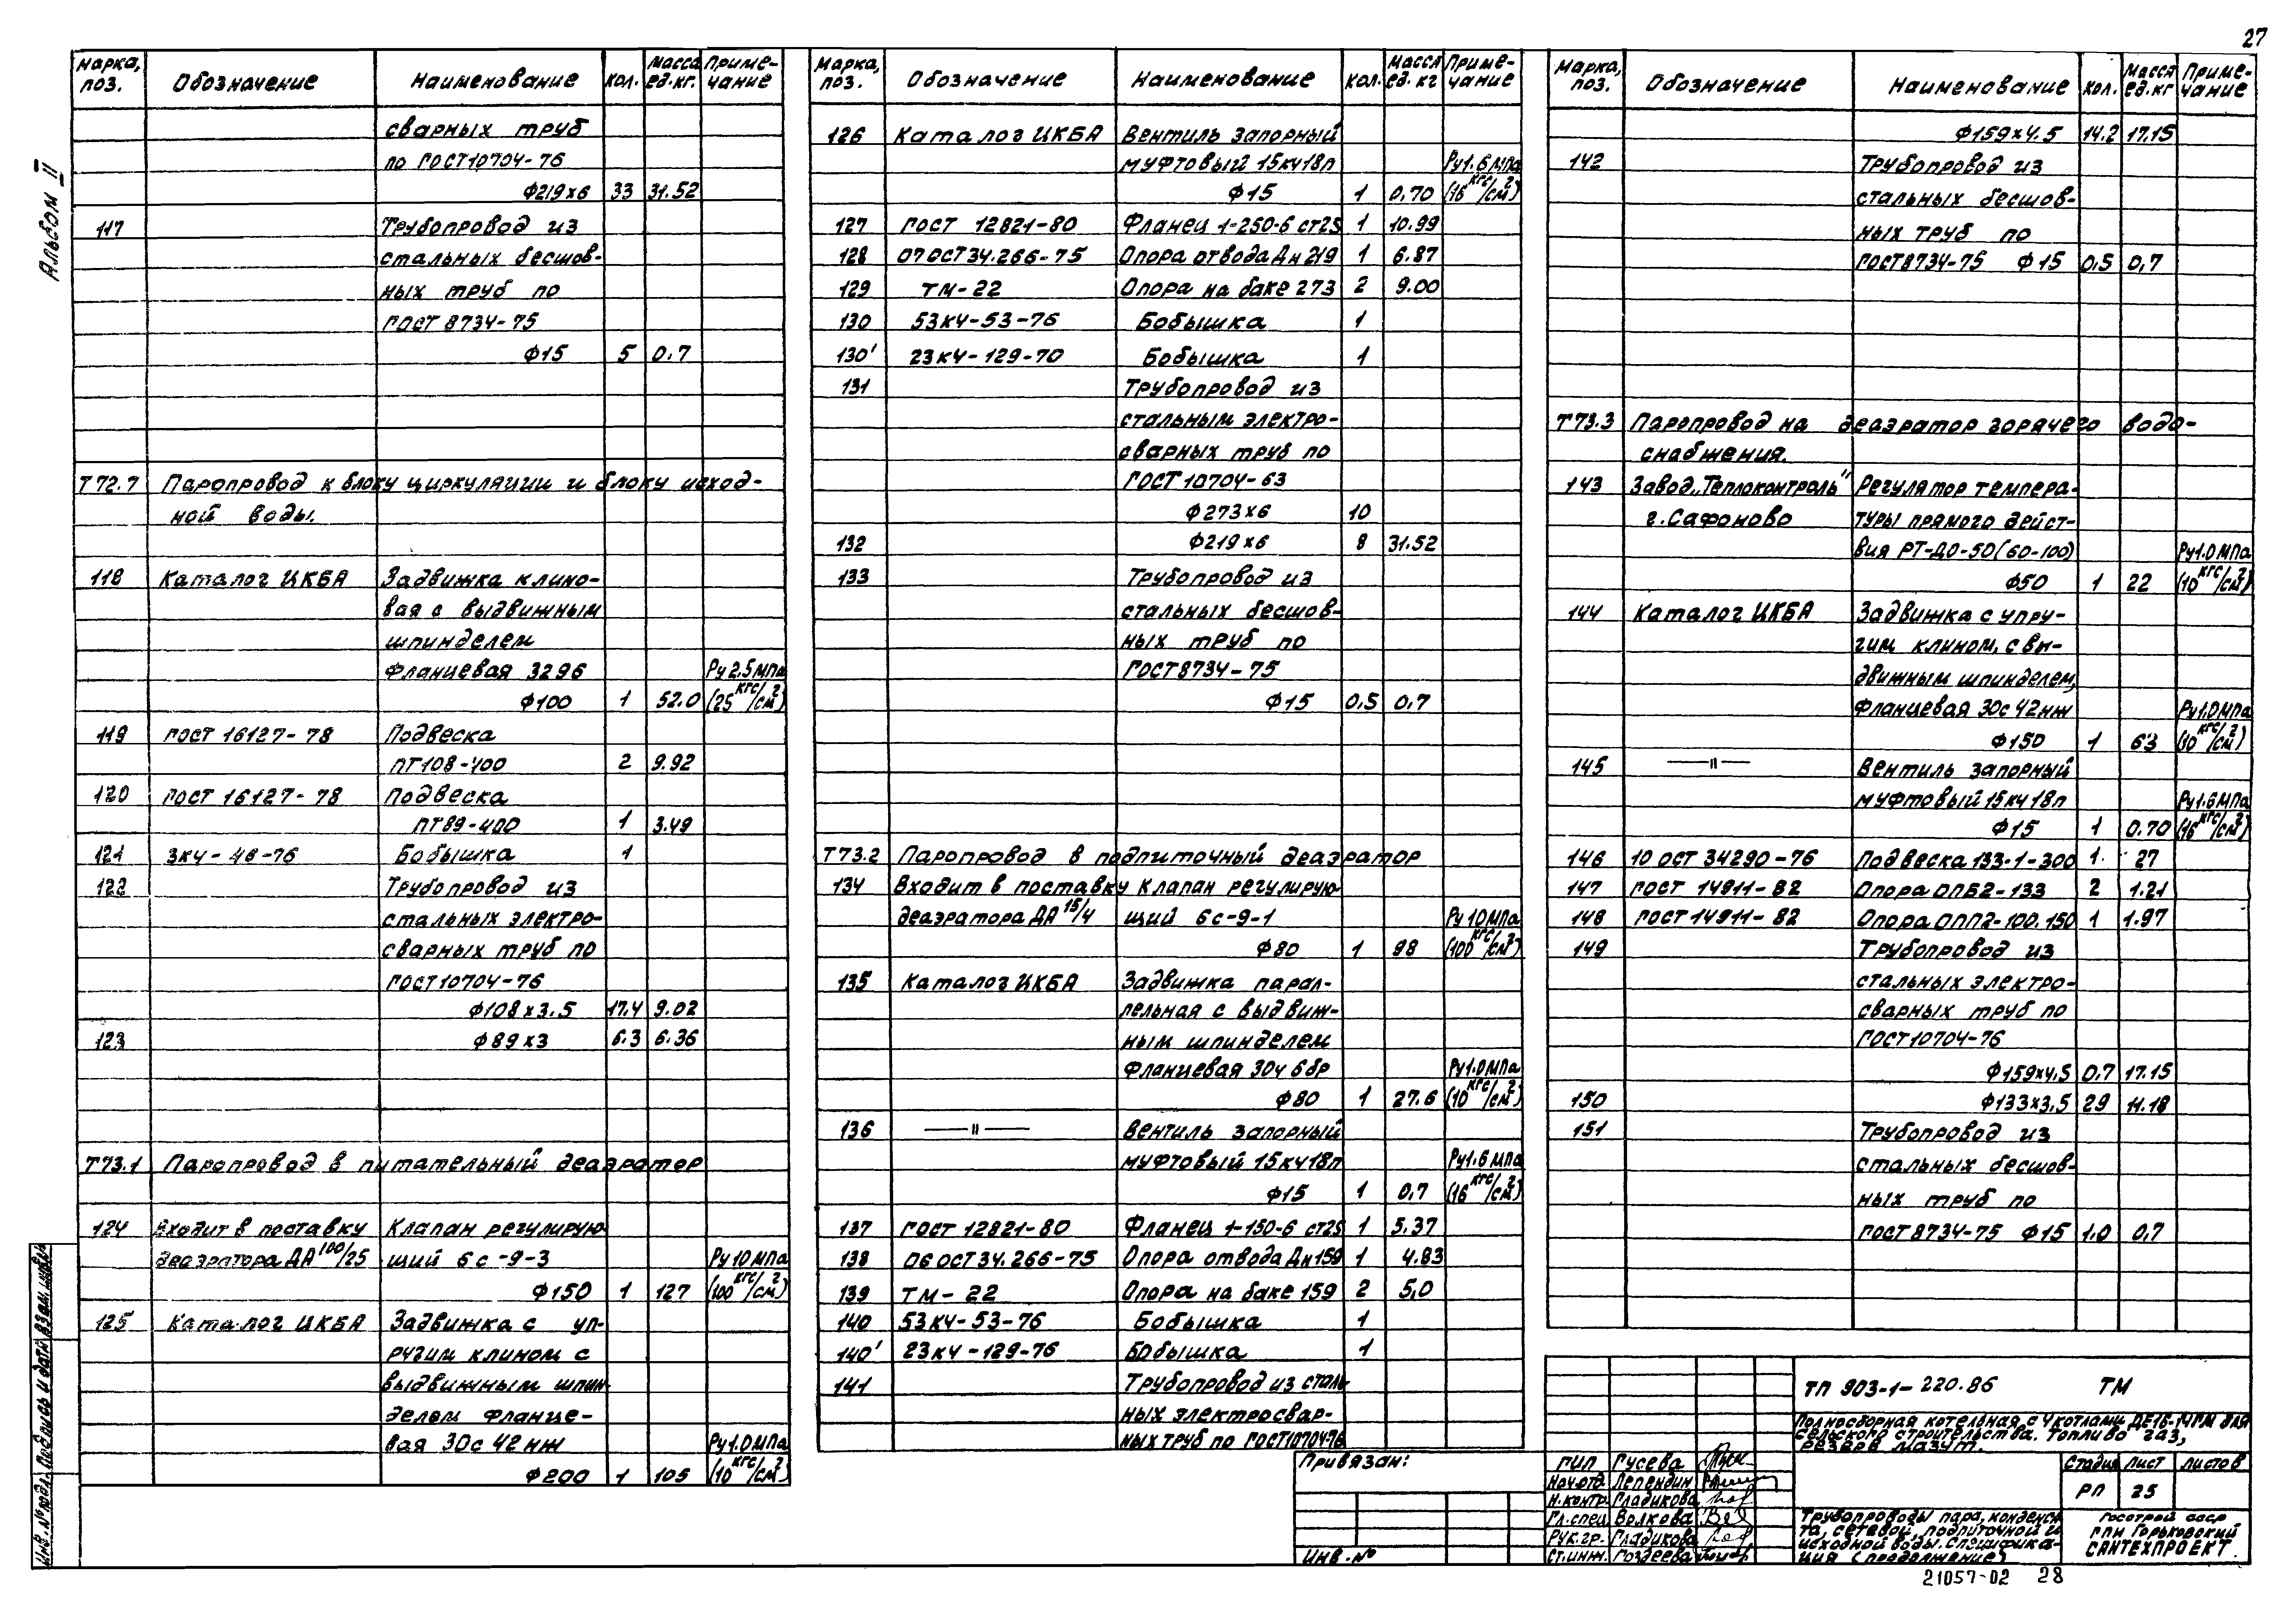 27
Альбом II
Марка, поз. Обозначение Наименование кол. Масса ед.кг. Примечание
сварных труб
по ГОСТ10704-76
Ф219х6 33 31.52
117 Трубопровод из
стальных бесшов-
ных труб по
ГОСТ 8734-75
Ф15 5 0.7
Т72.7 Паропровод к блоку циркуляции и блоку исход-
ной воды.
118 Каталог ЦКБА Задвижка клино-
вая с выдвижным
шпинделем
фланцевая 3296 Ру2.5МПа
Ф100 1 52.0 (25 кгс/см²)
119 ГОСТ 16127-78 Подвеска
ПТ108-400 2 9.92
120 ГОСТ 16127-78 Подвеска
ПТ89-400 1 3.49
121 3К4-46-76 Бобышка 1
122 Трубопровод из
стальных электро-
сварных труб по
ГОСТ10704-76
Ф108х3.5 17.4 9.02
123 Ф89х3 6.3 6.36
Т73.1 Паропровод в питательный деаэратор
124 Входит в поставку Клапан регулирую-
деаэратора ДА 100/25 щий 6с-9-3 Ру10МПа
Ф150 1 127 (100 кгс/см²)
125 Каталог ЦКБА Задвижка с уп-
ругим клином с
выдвижным шпин-
делем фланце-
вая 30с42нж Ру1.0МПа
Ф200 1 105 (10 кгс/см²)
Марка, поз. Обозначение Наименование кол. Масса ед.кг Примечание
126 Каталог ЦКБА Вентиль запорный
муфтовый 15кч18п Ру1.6МПа
Ф15 1 0,70 (16 кгс/см²)
127 ГОСТ 12821-80 Фланец 1-250-6 ст25 1 10.99
128 07ОСТ34.266-75 Опора отвода Дн219 1 6.87
129 ТМ-22 Опора на баке 273 2 9.00
130 53К4-53-76 Бобышка 1
130' 23К4-129-70 Бобышка 1
131 Трубопровод из
стальным электро-
сварных труб по
ГОСТ10704-63
Ф273х6 10
132 Ф219х6 8 31.52
133 Трубопровод из
стальных бесшов-
ных труб по
ГОСТ8734-75
Ф15 0,5 0,7
Т73.2 Паропровод в подпиточный деаэратор
134 Входит в поставку Клапан регулирую-
деаэратора ДА 15/4 щий 6с-9-1 Ру10МПа
Ф80 1 98 (100 кгс/см²)
135 Каталог ЦКБА Задвижка парал-
лельная с выдвиж-
ным шпинделем
фланцевая 30ч6бр Ру1.0МПа
Ф80 1 27.6 (10 кгс/см²)
136 —"— Вентиль запорный
муфтовый 15кч18п Ру1.6МПа
Ф15 1 0,7 (16 кгс/см²)
137 ГОСТ 12821-80 Фланец 1-150-6 ст25 1 5.37
138 06ОСТ34.266-75 Опора отвода Дн159 1 4.83
139 ТМ-22 Опора на баке 159 2 5,0
140 53К4-53-76 Бобышка 1
140' 23К4-129-76 Бобышка 1
141 Трубопровод из сталь-
ных электросвар-
ных труб по ГОСТ10704-76
Марка, поз. Обозначение Наименование кол. Масса ед.кг Примечание
Ф159х4.5 14.2 17.15
142 Трубопровод из
стальных бесшов-
ных труб по
ГОСТ8734-75 Ф15 0,5 0,7
Т73.3 Паропровод на деаэратор горячего водо-
снабжения.
143 Завод „Теплоконтроль" Регулятор темпера-
г.Сафоново туры прямого дейст-
вия РТ-ДО-50(60-100) Ру1.0МПа
Ф50 1 22 (10 кгс/см²)
144 Каталог ЦКБА Задвижка с упру-
гим клином, с вы-
движным шпинделем,
фланцевая 30с42нж Ру1.0МПа
Ф150 1 63 (10 кгс/см²)
145 —"— Вентиль запорный
муфтовый 15кч18п Ру1.6МПа
Ф15 1 0.70 (16 кгс/см²)
146 10 ОСТ 34290-76 Подвеска 133-1-300 1 27
147 ГОСТ 14911-82 Опора ОПБ2-133 2 1.21
148 ГОСТ 14911-82 Опора ОПП2-100.150 1 1.97
149 Трубопровод из
стальных электро-
сварных труб по
ГОСТ10704-76
Ф159х4,5 0,7 17.15
150 Ф133х3,5 29 11.18
151 Трубопровод из
стальных бесшов-
ных труб по
ГОСТ8734-75 Ф15 1.0 0,7
Инв.№подл. Подпись и дата Взам.инв.№
Привязан:
Инв.№
ГИП Гусева
Нач.отд. Лепендин
Н.контр. Гладикова
Гл.спец Волкова
Рук.гр. Гладикова
Ст.инж. Гоздеева
ТП 903-1-220.86 ТМ
Полносборная котельная с 4 котлами ДЕ16-14ГМ для
сельского строительства. Топливо газ,
резерв мазут.
Стадия Лист Листов
РП 25
Трубопроводы пара, конденса-
та, сетевой, подпиточной и
исходной воды. Специфика-
ция (продолжение)
Госстрой СССР
ГПИ Горьковский
САНТЕХПРОЕКТ
21057-02 28